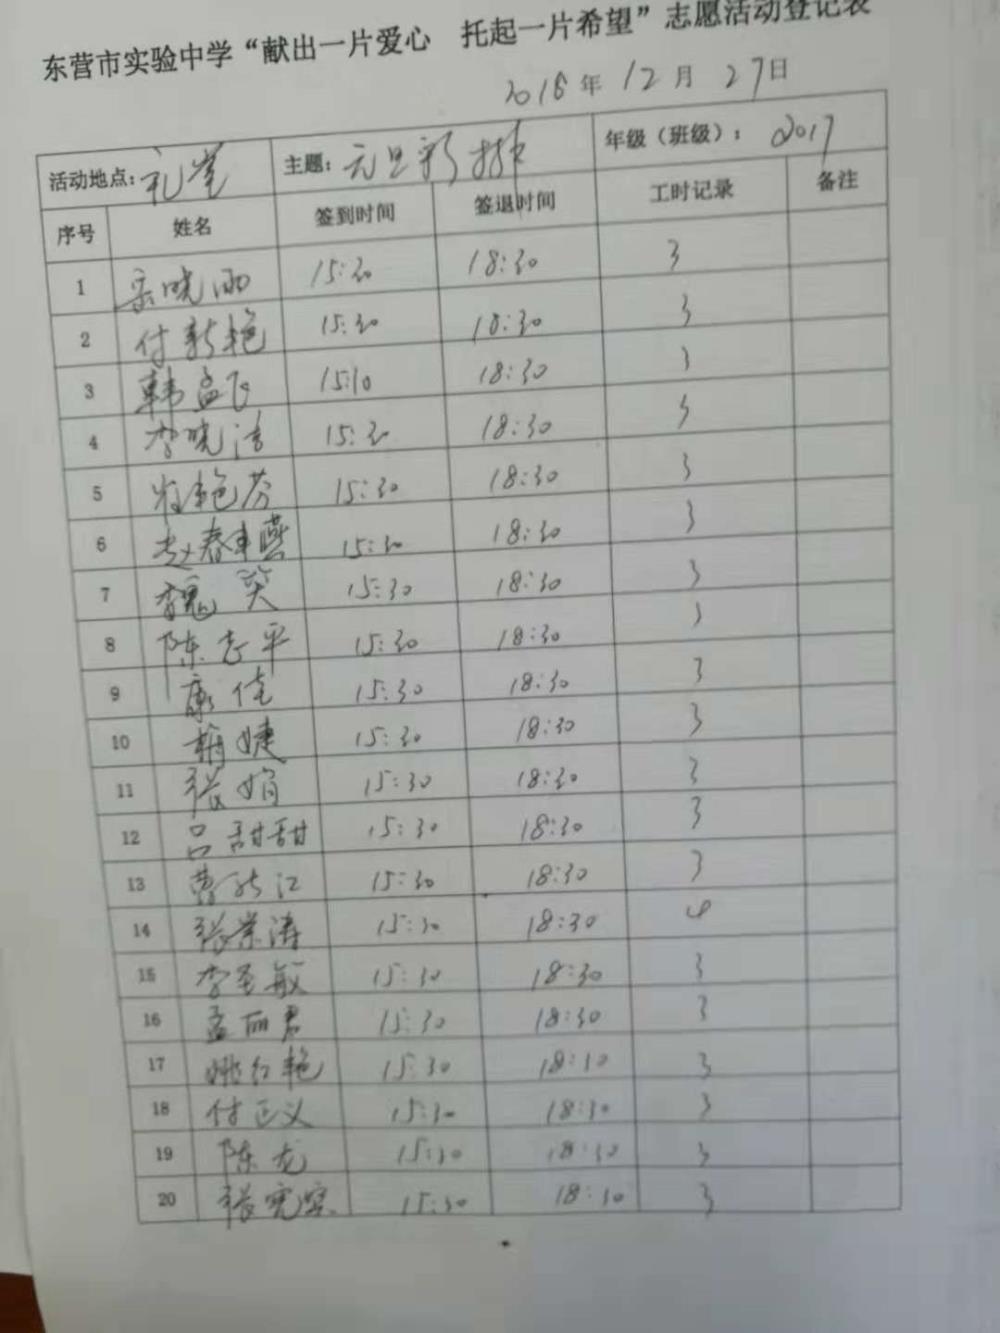 东营市实验中学“献出一片爱心 托起一片希望”志愿活动登记表
2018年12月27日
活动地点:礼堂 主题:元旦彩排 年级(班级):2017
序号 姓名 签到时间 签退时间 工时记录 备注
1 宗晓雨 15:30 18:30 3
2 付新艳 15:30 18:30 3
3 韩孟飞 15:10 18:30 3
4 李晓洁 15:30 18:30 3
5 艳芬 15:30 18:30 3
6 赵春燕 15:30 18:30 3
7 魏笑 15:30 18:30 3
8 陈志平 15:30 18:30 3
9 康佳 15:30 18:30 3
10 婕 15:30 18:30 3
11 张娟 15:30 18:30 3
12 吕甜甜 15:30 18:30 3
13 曹江 15:30 18:30 3
14 张荣涛 15:30 18:30
15 李圣敏 15:30 18:30 3
16 孟丽君 15:30 18:30 3
17 姚红艳 15:30 18:30 3
18 付正义 15:30 18:30 3
19 陈龙 15:30 18:30 3
20 张宪宾 15:30 18:30 3